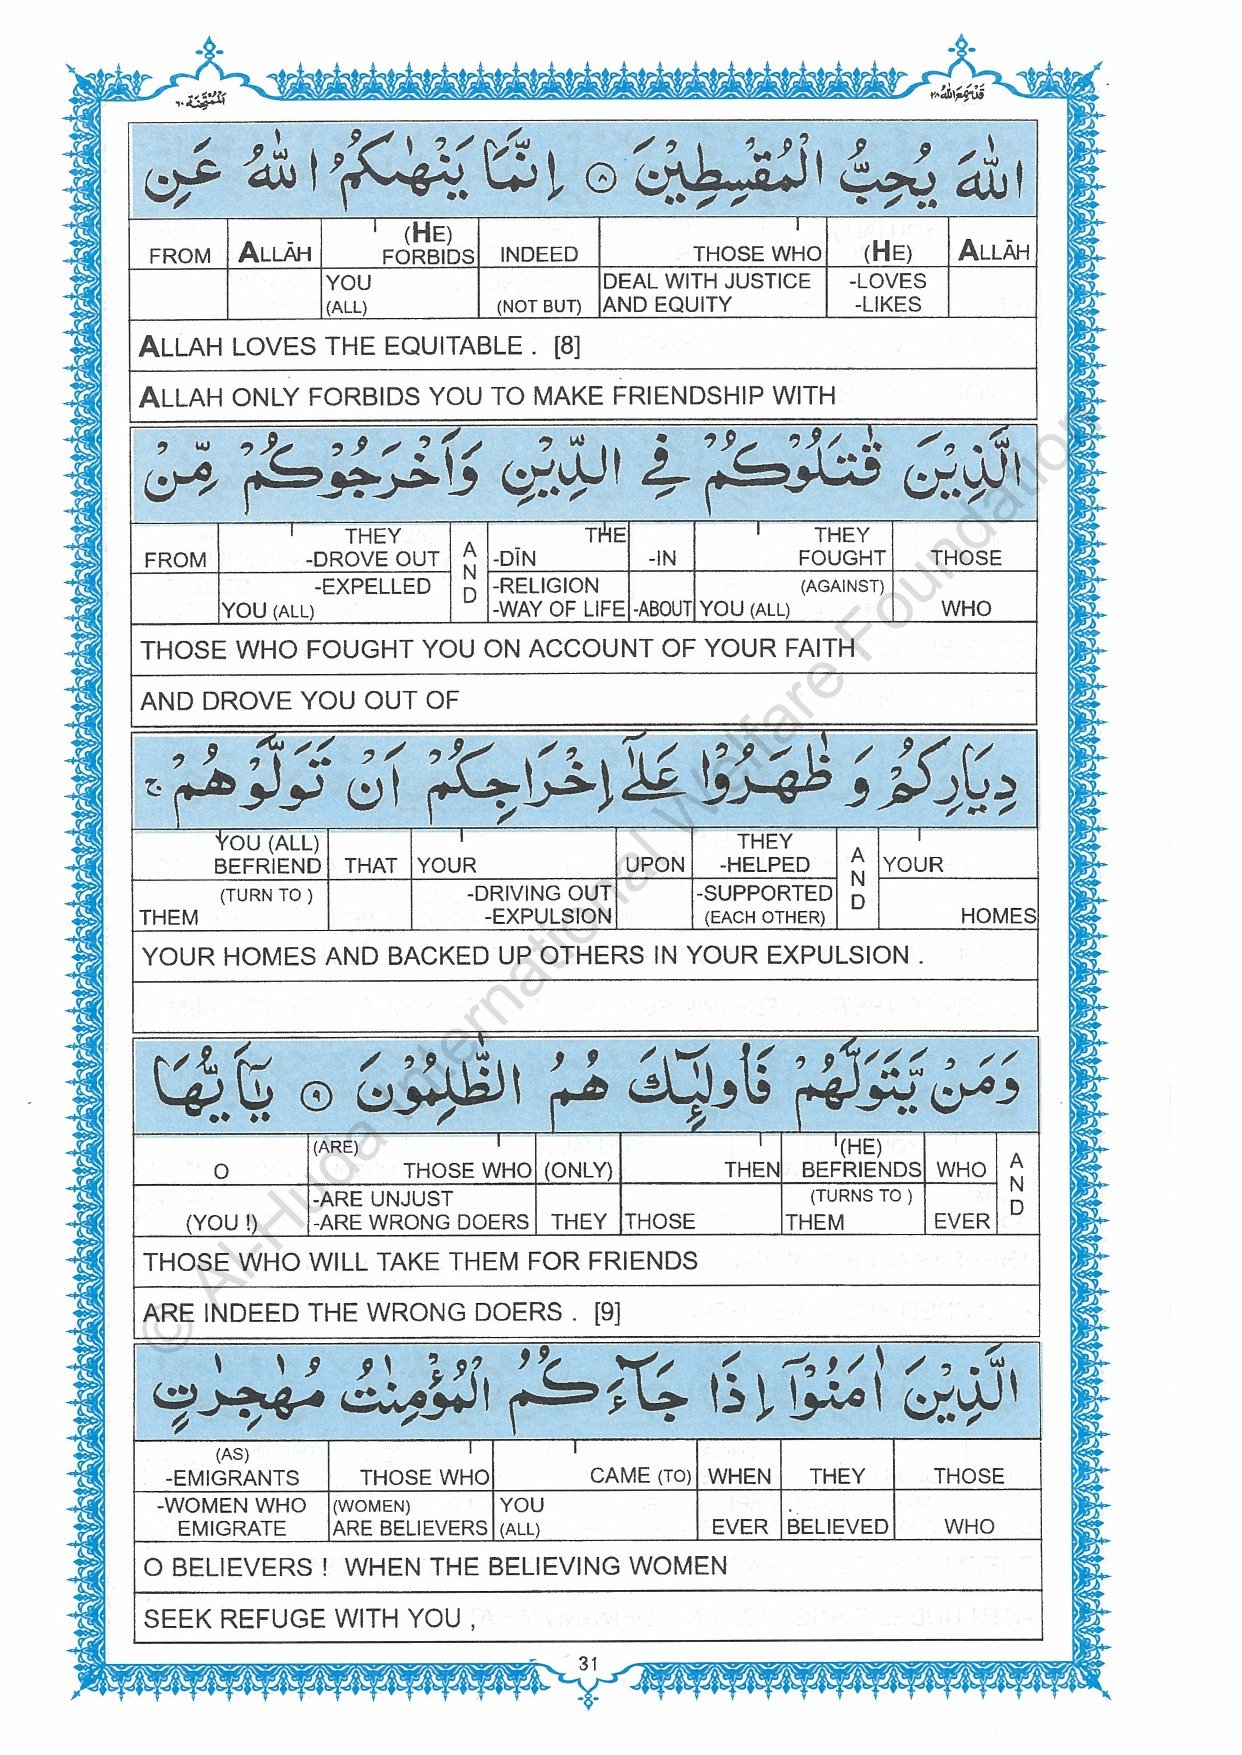 قَدْ سَمِعَ اللّٰهُ ٢٨
اَلْمُمْتَحِنَة ٦٠
اللّٰهَ يُحِبُّ الْمُقْسِطِيْنَ ٨ اِنَّمَا يَنْهٰىكُمُ اللّٰهُ عَنِ
FROM ALLĀH (HE) FORBIDS INDEED THOSE WHO (HE) ALLĀH
YOU (ALL) (NOT BUT) DEAL WITH JUSTICE AND EQUITY -LOVES -LIKES
ALLAH LOVES THE EQUITABLE . [8]
ALLAH ONLY FORBIDS YOU TO MAKE FRIENDSHIP WITH
الَّذِيْنَ قٰتَلُوْكُمْ فِي الدِّيْنِ وَاَخْرَجُوْكُمْ مِّنْ
FROM THEY -DROVE OUT AND THE -DĪN -IN THEY FOUGHT THOSE
-EXPELLED YOU (ALL) -RELIGION -WAY OF LIFE -ABOUT (AGAINST) YOU (ALL) WHO
THOSE WHO FOUGHT YOU ON ACCOUNT OF YOUR FAITH
AND DROVE YOU OUT OF
دِيَارِكُمْ وَ ظٰهَرُوْا عَلٰٓى اِخْرَاجِكُمْ اَنْ تَوَلَّوْهُمْ ج
YOU (ALL) BEFRIEND THAT YOUR UPON THEY -HELPED AND YOUR
(TURN TO ) THEM -DRIVING OUT -EXPULSION -SUPPORTED (EACH OTHER) HOMES
YOUR HOMES AND BACKED UP OTHERS IN YOUR EXPULSION .
وَمَنْ يَّتَوَلَّهُمْ فَاُولٰٓئِكَ هُمُ الظّٰلِمُوْنَ ٩ يٰٓاَيُّهَا
O (ARE) THOSE WHO (ONLY) THEN (HE) BEFRIENDS WHO AND
(YOU !) -ARE UNJUST -ARE WRONG DOERS THEY THOSE (TURNS TO ) THEM EVER
THOSE WHO WILL TAKE THEM FOR FRIENDS
ARE INDEED THE WRONG DOERS . [9]
الَّذِيْنَ اٰمَنُوْٓا اِذَا جَآءَكُمُ الْمُؤْمِنٰتُ مُهٰجِرٰتٍ
(AS) -EMIGRANTS THOSE WHO CAME (TO) WHEN THEY THOSE
-WOMEN WHO EMIGRATE (WOMEN) ARE BELIEVERS YOU (ALL) EVER BELIEVED WHO
O BELIEVERS ! WHEN THE BELIEVING WOMEN
SEEK REFUGE WITH YOU ,
31
© Al-Huda International Welfare Foundation